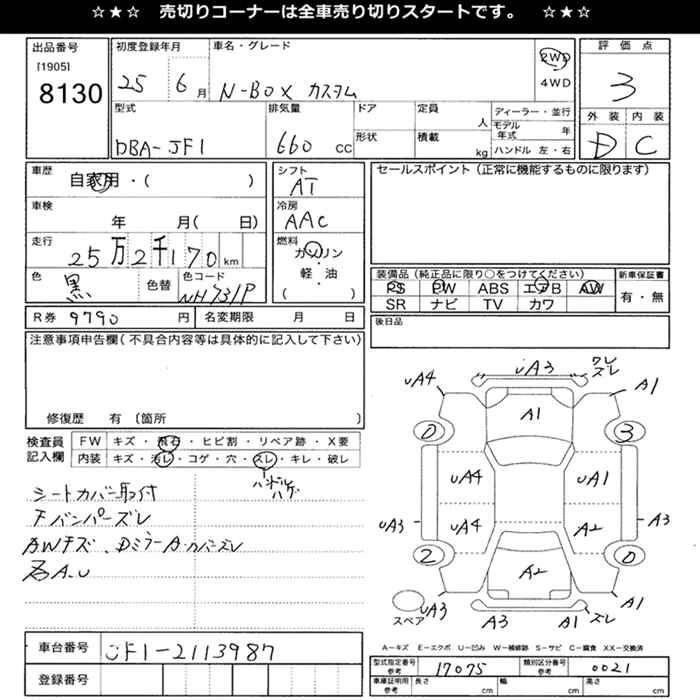 ☆★☆ 売切りコーナーは全車売り切りスタートです。 ☆★☆
出品番号
[1905]
8130
初度登録年月
25 6月
車名・グレード
N-BOX カスタム
2WD
4WD
評価点
3
外装 内装
D C
型式
DBA-JF1
排気量
660 CC
ドア
形状
定員
人
積載
kg
ディーラー・並行
モデル年式 年
ハンドル 左・右
車歴
自家用・( )
車検
年 月( 日)
走行
25万2千170km
色
黒
色替
色コード
NH731P
シフト
AT
冷房
AAC
燃料
ガソリン
・
軽・油
( )
セールスポイント(正常に機能するものに限ります)
装備品(純正品に限り○をつけてください)
PS PW ABS エアB AW
SR ナビ TV カワ
新車保証書
有・無
R券 9790円
名変期限 月 日
後日品
注意事項申告欄(不具合内容等は具体的に記入して下さい)
修復歴 有 (箇所 )
検査員記入欄
FW キズ・飛石・ヒビ割・リペア跡・X要
内装 キズ・汚レ・コゲ・穴・スレ・キレ・破レ
ハンドルハゲ
シートカバー取付
Fバンパーズレ
AWキズ、DミラーAカバーズレ
A.U
UA4 UA3 ワレ ズレ A1
0 A1 3
UA4 UA1
UA3 UA4 A2 A3
2 A2 0
スペア UA3 A3 A1 ズレ A1
A-キズ E-エクボ U-凹み W-補修跡 S-サビ C-腐食 XX-交換済
車台番号 JF1-2113987
登録番号
型式指定番号 参考 17075
類別区分番号 参考 0021
車庫証明用 参考 長さ cm 幅 cm 高さ cm